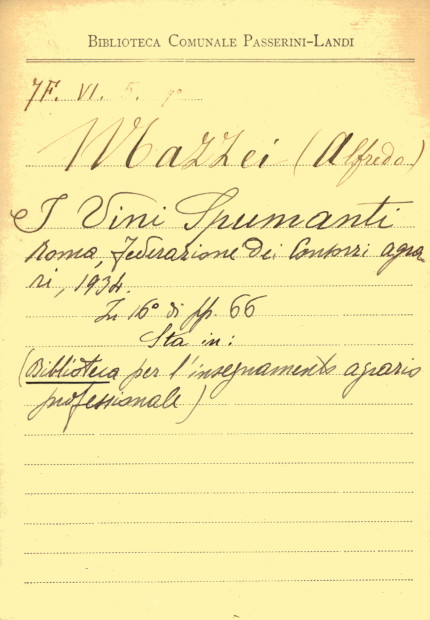 BIBLIOTECA COMUNALE PASSERINI-LANDI
7F. VI. 5.
Mazzei (Alfredo)
I Vini Spumanti
Roma, Federazione dei Consorzi agra-
ri, 1934.
In 16° di pp. 66
Sta in:
(Biblioteca per l'insegnamento agrario
professionale)